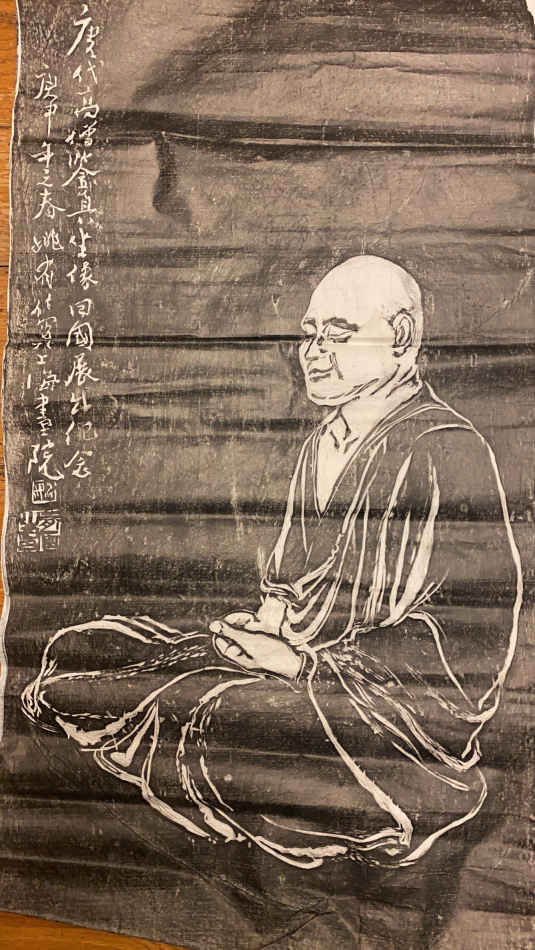 唐代高僧鉴真坐像回國展出纪念
庚申年之春姚有信写于上海畫院